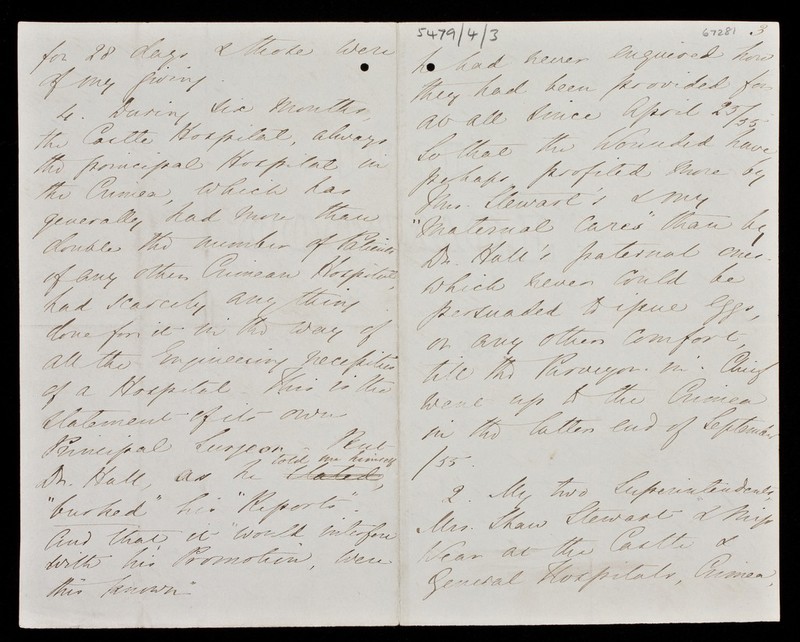 for 28 days & those were
of my giving.
4. During six months,
the Castle Hospital, always
the principal Hospital in
the Crimea, which has
generally had more than
double the number of Patients
of any other Crimean Hospital,
had scarcely any thing
done for it in the way of
all the Engineering necessities
of a Hospital. This is the
statement of its own
Principal Surgeon. But
told me himself
Dr. Hall, as he stated,
"burked" his "Reports".
And that it "would interfere
with his Promotion, were
this known"
5479/4/3
67281 3
he had never enquired how
they had been provided for
at all since April 25/55.
So that the Wounded have
perhaps profited more by
Mrs. Stewart's & my
"maternal cares" than by
Dr. Hall's paternal ones.
which never could be
persuaded to issue Eggs,
or any other comfort,
till the Purveyor in Chief
went up to the Crimea
in the latter end of September
/55.
2. My two Superintendents
Mrs. Shaw Stewart & Miss
Wear at the Castle &
General Hospitals, Crimea,